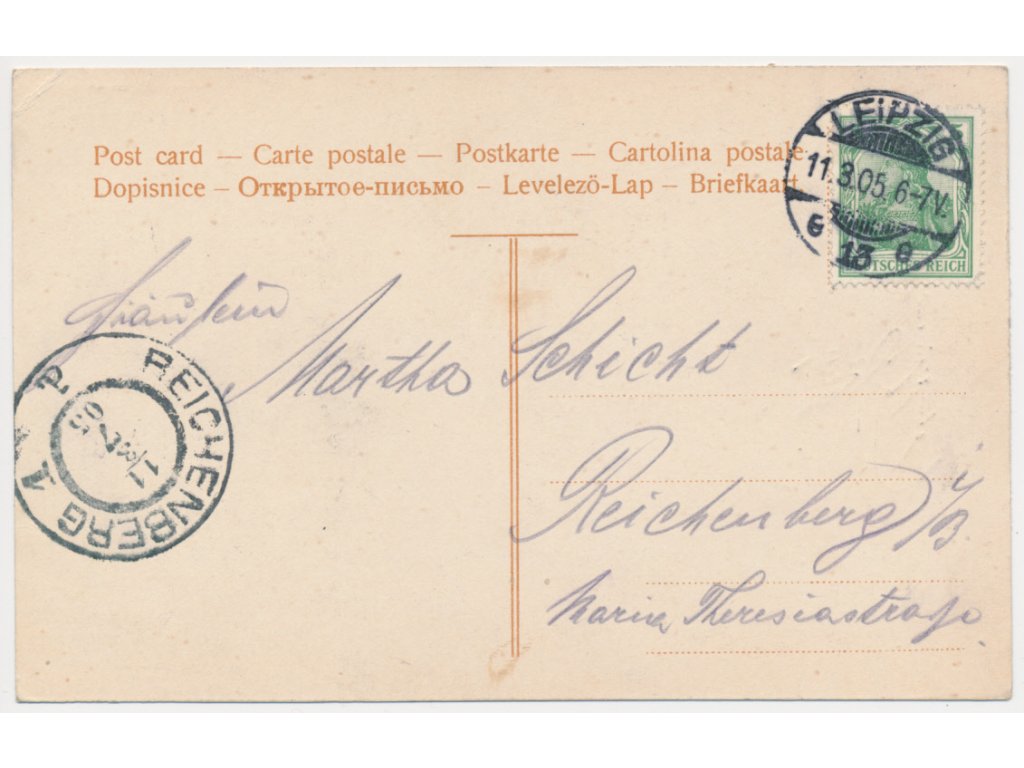 Post card — Carte postale — Postkarte — Cartolina postale
Dopisnice — Открытое-письмо — Levelező-Lap — Briefkaart
LEIPZIG
11.3.05. 6-7V.
e 13 e
DEUTSCHES REICH
Fräulein
Martha Schicht
Reichenberg i/B.
Maria Theresiastraße
REICHENBERG 1
11/3 05